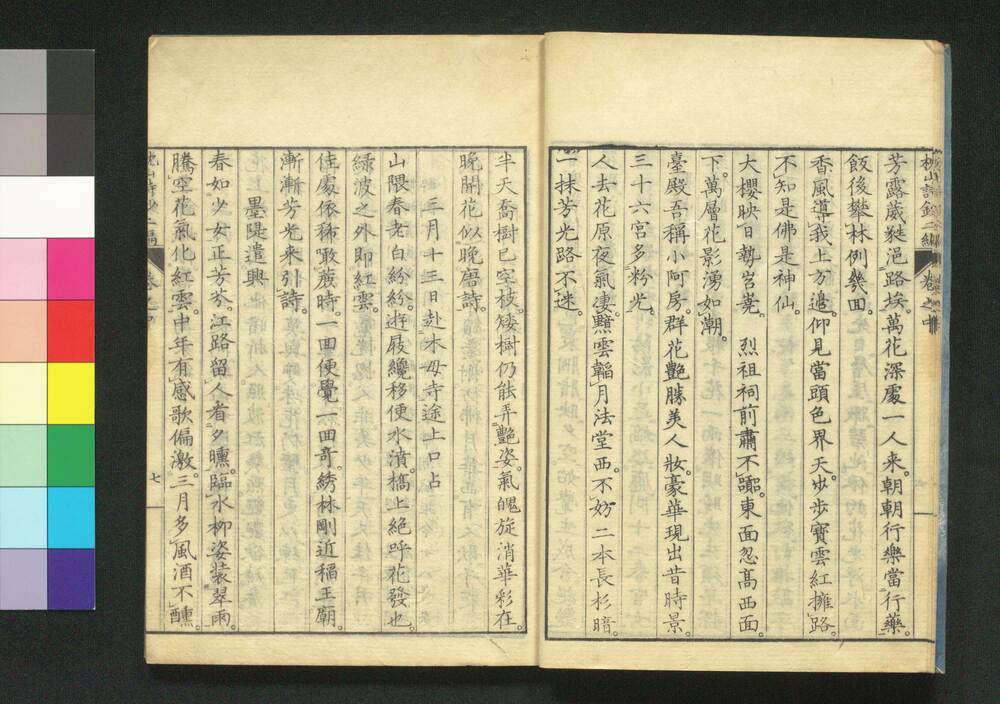 芳露葳蕤浥路埃。萬花深處一人来。朝朝行樂當行藥。
飯後攀林例幾回。
香風導我上方邉。仰見當頭色界天。步步寶雲紅擁路。
不知是佛是神仙。
大櫻映日勢岧嶤。烈祖祠前肅不囂。東面忽髙西面
下。萬層花影湧如潮。
臺殿吾稱小阿房。群花艶勝美人妝。豪華現出昔時景。
三十六宮多粉光。
人去花原夜氣凄。黯雲韜月法堂西。不妨二本長杉暗。
一抹芳光路不迷。
半天喬樹已空枝。矮樹仍能弄艶姿。氣魄旋消華彩在。
晚開花似晚唐詩。
三月十三日赴木母寺途上口占
山隈春老白紛紛。遊屐纔移便水濆。橋上絕呼花發也。
綠波之外即紅雲。
佳處依稀噉蔗時。一回便覺一回奇。綉林剛近稲王廟。
漸漸芳光来引詩。
墨隄遣興
春如少女正芳芬。江路留人看夕曛。臨水柳姿装翠雨。
騰空花氣化紅雲。中年有感歌偏激。三月多風酒不醺。
七